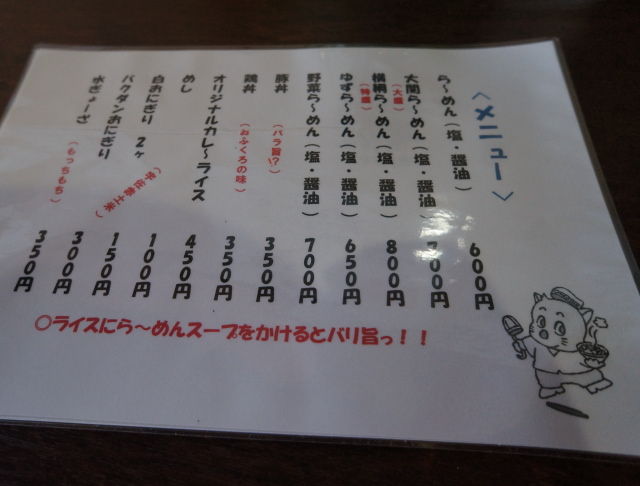 〈メニュー〉
ら〜めん(塩・醤油) 600円
大関ら〜めん(塩・醤油) 700円
(大盛)
横綱ら〜めん(塩・醤油) 800円
(特盛)
ゆずら〜めん(塩・醤油) 650円
野菜ら〜めん(塩・醤油) 700円
豚丼 (バラ旨!?) 350円
鶏丼 (おふくろの味) 350円
オリジナルカレ〜ライス 450円
めし 100円
白おにぎり 2ヶ 150円
バクダンおにぎり 300円
水ぎょーざ (もっちもち) 350円
○ライスにら〜めんスープをかけるとバリ旨っ!!